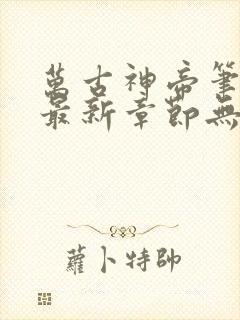 萬古神帝筆
最新章節無
蘿卜特帥